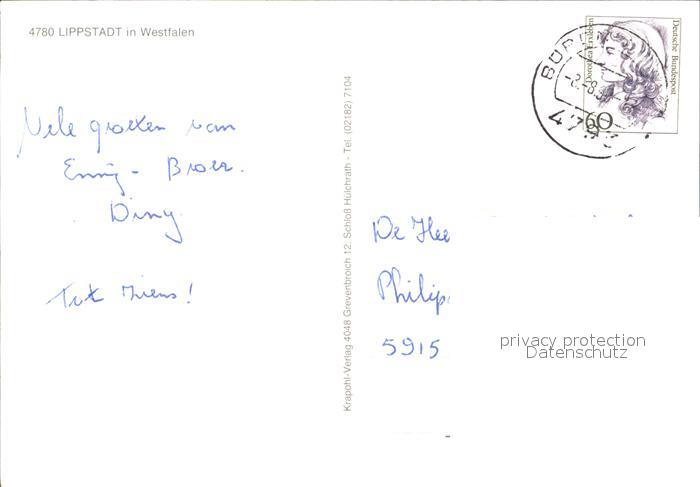 4780 LIPPSTADT in Westfalen
Vele groeten van
Enny - Broer.
Diny
Tot ziens!
Krapohl-Verlag 4048 Grevenbroich 12, Schloß Hülchrath - Tel. (02182) 7104
Dorothea Erxleben
Deutsche Bundespost
60
De Hee
Philip
5915
privacy protection
Datenschutz